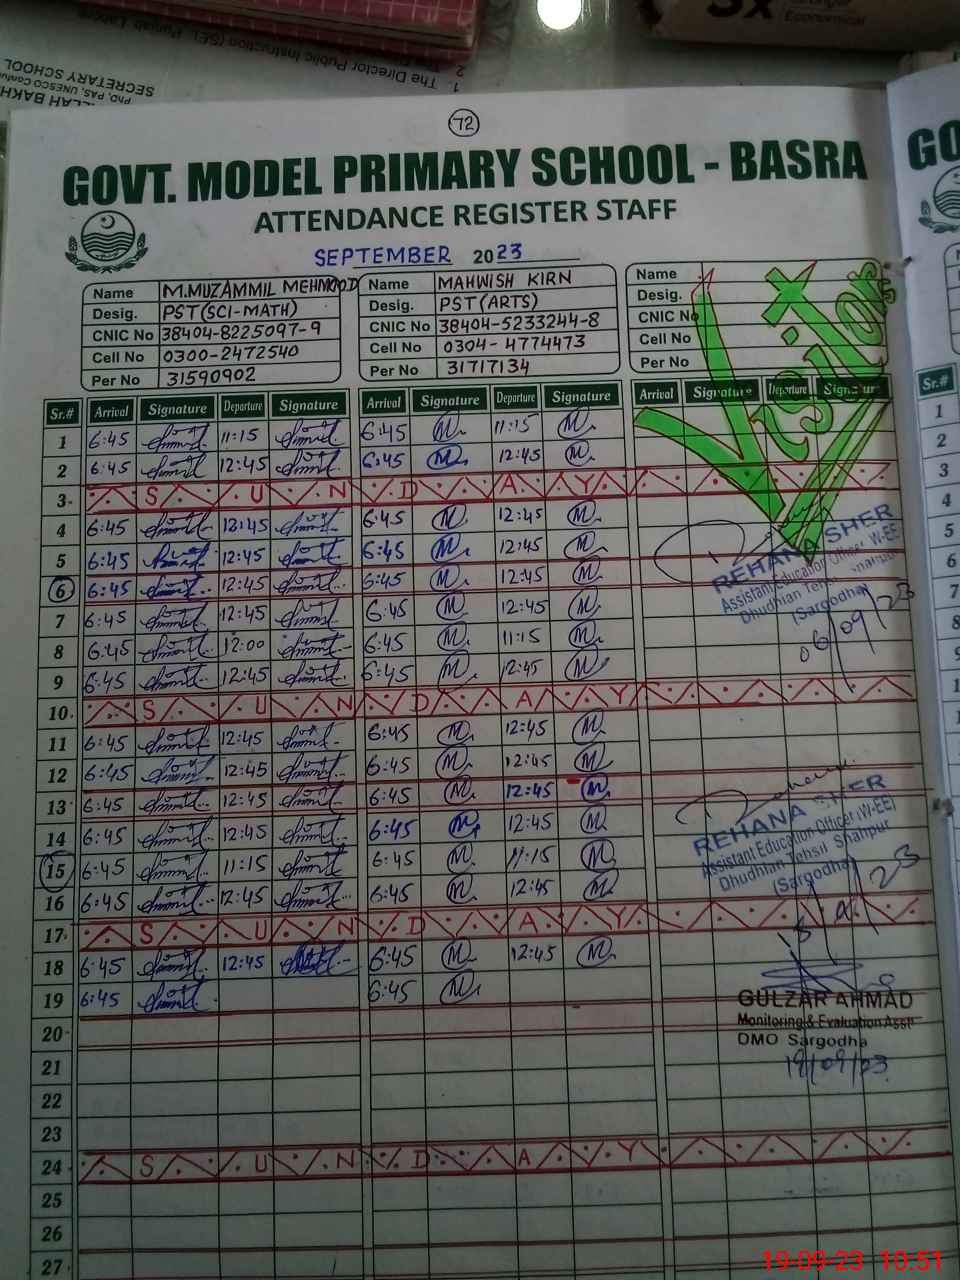 3x
Economical
2 The Director Public Instruction (SE), Punjab, Lahore
1
PhD, PAS, UNESCO
SECRETARY SCHOOL
72
GOVT. MODEL PRIMARY SCHOOL - BASRA
GO
ATTENDANCE REGISTER STAFF
SEPTEMBER 2023
Name M.MUZAMMIL MEHMOOD Name MAHWISH KIRN Name
Desig. PST(SCI-MATH) Desig. PST(ARTS) Desig.
CNIC No 38404-8225097-9 CNIC No 38404-5233244-8 CNIC No
Cell No 0300-2472540 Cell No 0304-4774473 Cell No
Per No 31590902 Per No 31717134 Per No
Visitors
Sr.# Arrival Signature Departure Signature Arrival Signature Departure Signature Arrival Signature Departure Signature Sr.#
1 6:45 11:15 6:45 M. 11:15 M. 1
2 6:45 12:45 6:45 M. 12:45 M. 2
3 S U N D A Y 3
4 6:45 12:45 6:45 M. 12:45 M. 4
5 6:45 12:45 6:45 M. 12:45 M. 5
6 6:45 12:45 6:45 M. 12:45 M. 6
7 6:45 12:45 6:45 M. 12:45 M. 7
8 6:45 12:00 6:45 M. 11:15 M. 8
9 6:45 12:45 6:45 M. 12:45 M. 9
10 S U N D A Y
11 6:45 12:45 6:45 M. 12:45 M.
12 6:45 12:45 6:45 M. 12:45 M.
13 6:45 12:45 6:45 M. 12:45 M.
14 6:45 12:45 6:45 M. 12:45 M.
15 6:45 11:15 6:45 M. 11:15 M.
16 6:45 12:45 6:45 M. 12:45 M.
17 S U N D A Y
18 6:45 12:45 6:45 M. 12:45 M.
19 6:45 6:45 M.
20
21
22
23
24 S U N D A Y
25
26
27
REHANA SHER
Assistant Education Officer (W-EE)
Dhudhian Tehsil Shahpur
(Sargodha)
06/09/23
REHANA SHER
Assistant Education Officer (W-EE)
Dhudhian Tehsil Shahpur
(Sargodha)
GULZAR AHMAD
Monitoring & Evaluation Asstt
DMO Sargodha
19/09/23
19-09-23 10:51